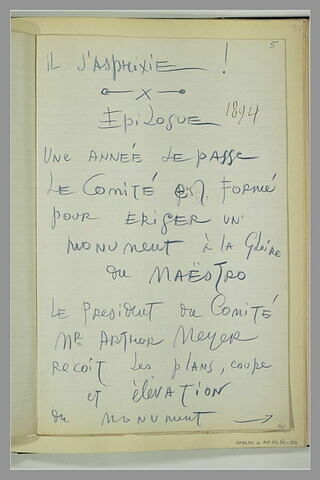 5
il s'asphixie !
Epilogue 1894
Une année se passe
Le Comité est formé
pour eriger un
monument à la Gloire
du Maëstro
Le president du Comité
Mr Arthur Meyer
recoit les plans, coupe
et élévation
du monument